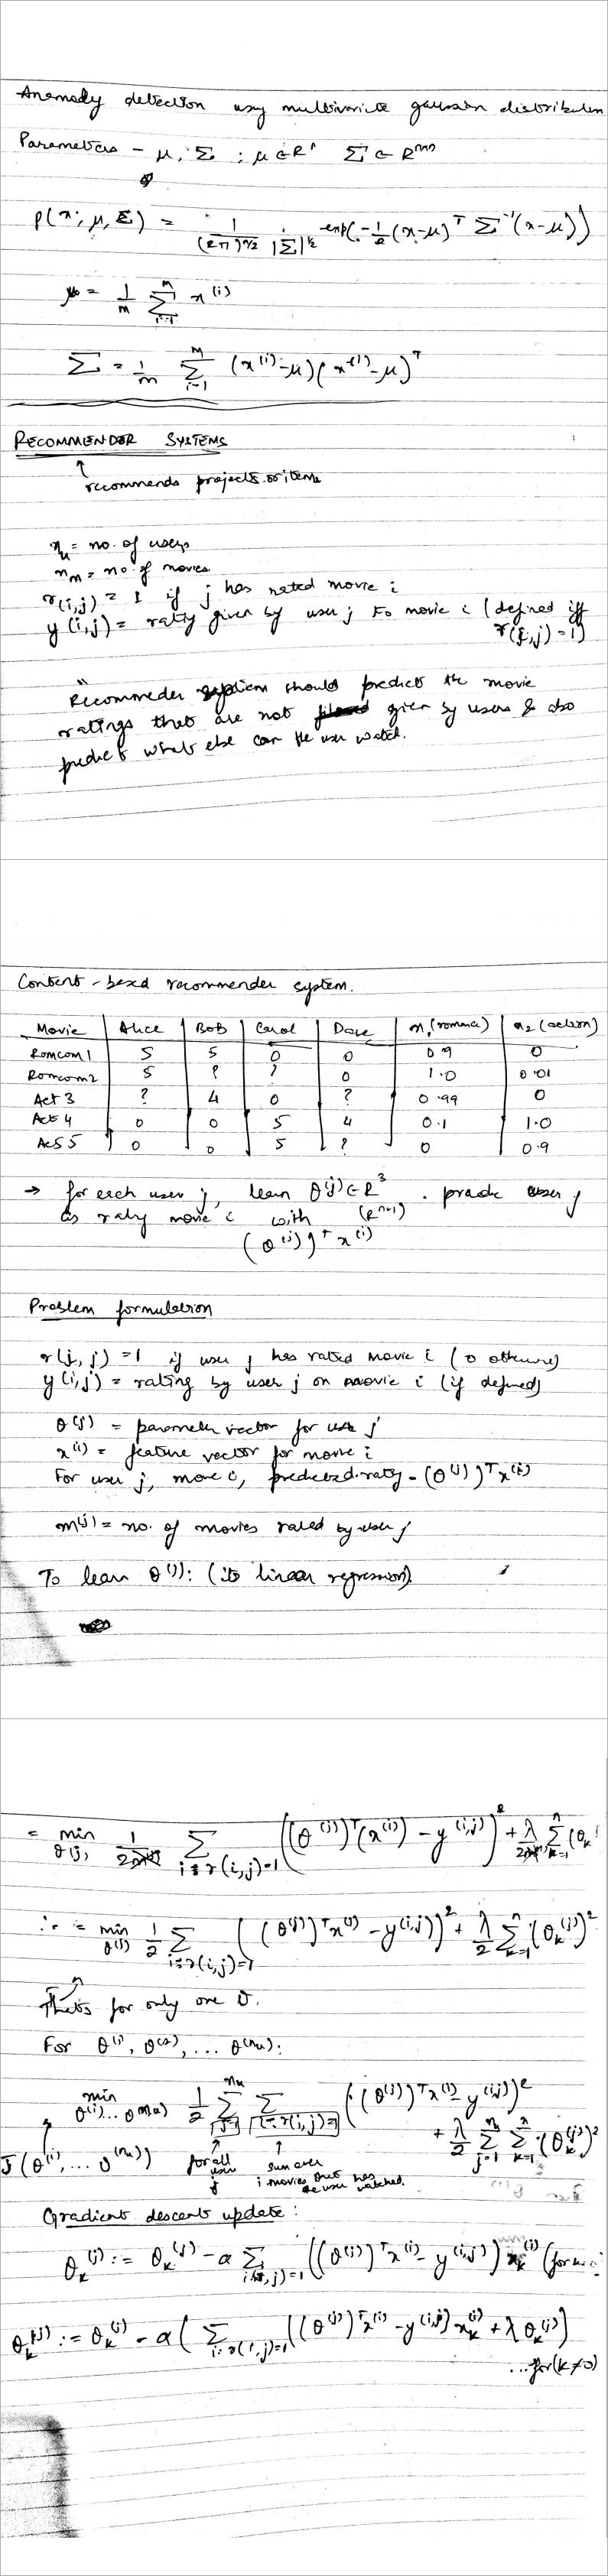 Anomaly detection using multivariate gaussian distribution
Parameters - μ, Σ ; μ ∈ R^n Σ ∈ R^(n×n)
p(x; μ, Σ) = 1 / ((2π)^(n/2) |Σ|^(1/2)) exp(-1/2 (x-μ)^T Σ^(-1) (x-μ))
μ = 1/m Σ_(i=1)^m x^(i)
Σ = 1/m Σ_(i=1)^m (x^(i)-μ)(x^(i)-μ)^T
RECOMMENDER SYSTEMS
↑ recommends projects or items
n_u = no. of users
n_m = no. of movies
r(i,j) = 1 if j has rated movie i
y(i,j) = rating given by user j to movie i (defined iff
r(i,j)=1)
Recommeder system should predict the movie
ratings that are not given by users & also
predict what else can the user watch.
Content-based recommender system.
Movie | Alice | Bob | Carol | Dave | x1 (romance) | x2 (action)
Romcom1 | 5 | 5 | 0 | 0 | 0.9 | 0
Romcom2 | 5 | ? | ? | 0 | 1.0 | 0.01
Act 3 | ? | 4 | 0 | ? | 0.99 | 0
Act 4 | 0 | 0 | 5 | 4 | 0.1 | 1.0
Act 5 | 0 | 0 | 5 | ? | 0 | 0.9
→ for each user j, learn θ^(j) ∈ R^3 . user j
(R^(n+1))
as rating movie i with
(θ^(j))^T x^(i)
Problem formulation
r(i,j) = 1 if user j has rated movie i (0 otherwise)
y(i,j) = rating by user j on movie i (if defined)
θ^(j) = parameter vector for user j
x^(i) = feature vector for movie i
For user j, movie i, predicted rating - (θ^(j))^T x^(i)
m^(j) = no. of movies rated by user j
To learn θ^(j): (its linear regression).
= min_θ(j) 1/2 Σ_(i:r(i,j)=1) ((θ^(j))^T (x^(i)) - y^(i,j))^2 + λ/2 Σ_(k=1)^n (θ_k
∴ = min_θ(j) 1/2 Σ_(i:r(i,j)=1) ((θ^(j))^T x^(i) - y^(i,j))^2 + λ/2 Σ_(k=1)^n (θ_k^(j))^2
Thats for only one θ.
For θ^(1), θ^(2), ... θ^(n_u):
min_θ(1)...θ(n_u) 1/2 Σ_(j=1)^(n_u) Σ_(i:r(i,j)=1) ((θ^(j))^T x^(i) - y^(i,j))^2
+ λ/2 Σ_(j=1)^(n_u) Σ_(k=1)^n (θ_k^(j))^2
J(θ^(1), ... θ^(n_u))
for all user j
sum over i movies that has the user watched.
Gradient descent update:
θ_k^(j) := θ_k^(j) - α Σ_(i:r(i,j)=1) ((θ^(j))^T x^(i) - y^(i,j)) x_k^(i) (for
θ_k^(j) := θ_k^(j) - α ( Σ_(i:r(i,j)=1) ((θ^(j))^T x^(i) - y^(i,j)) x_k^(i) + λ θ_k^(j) )
...for (k≠0)